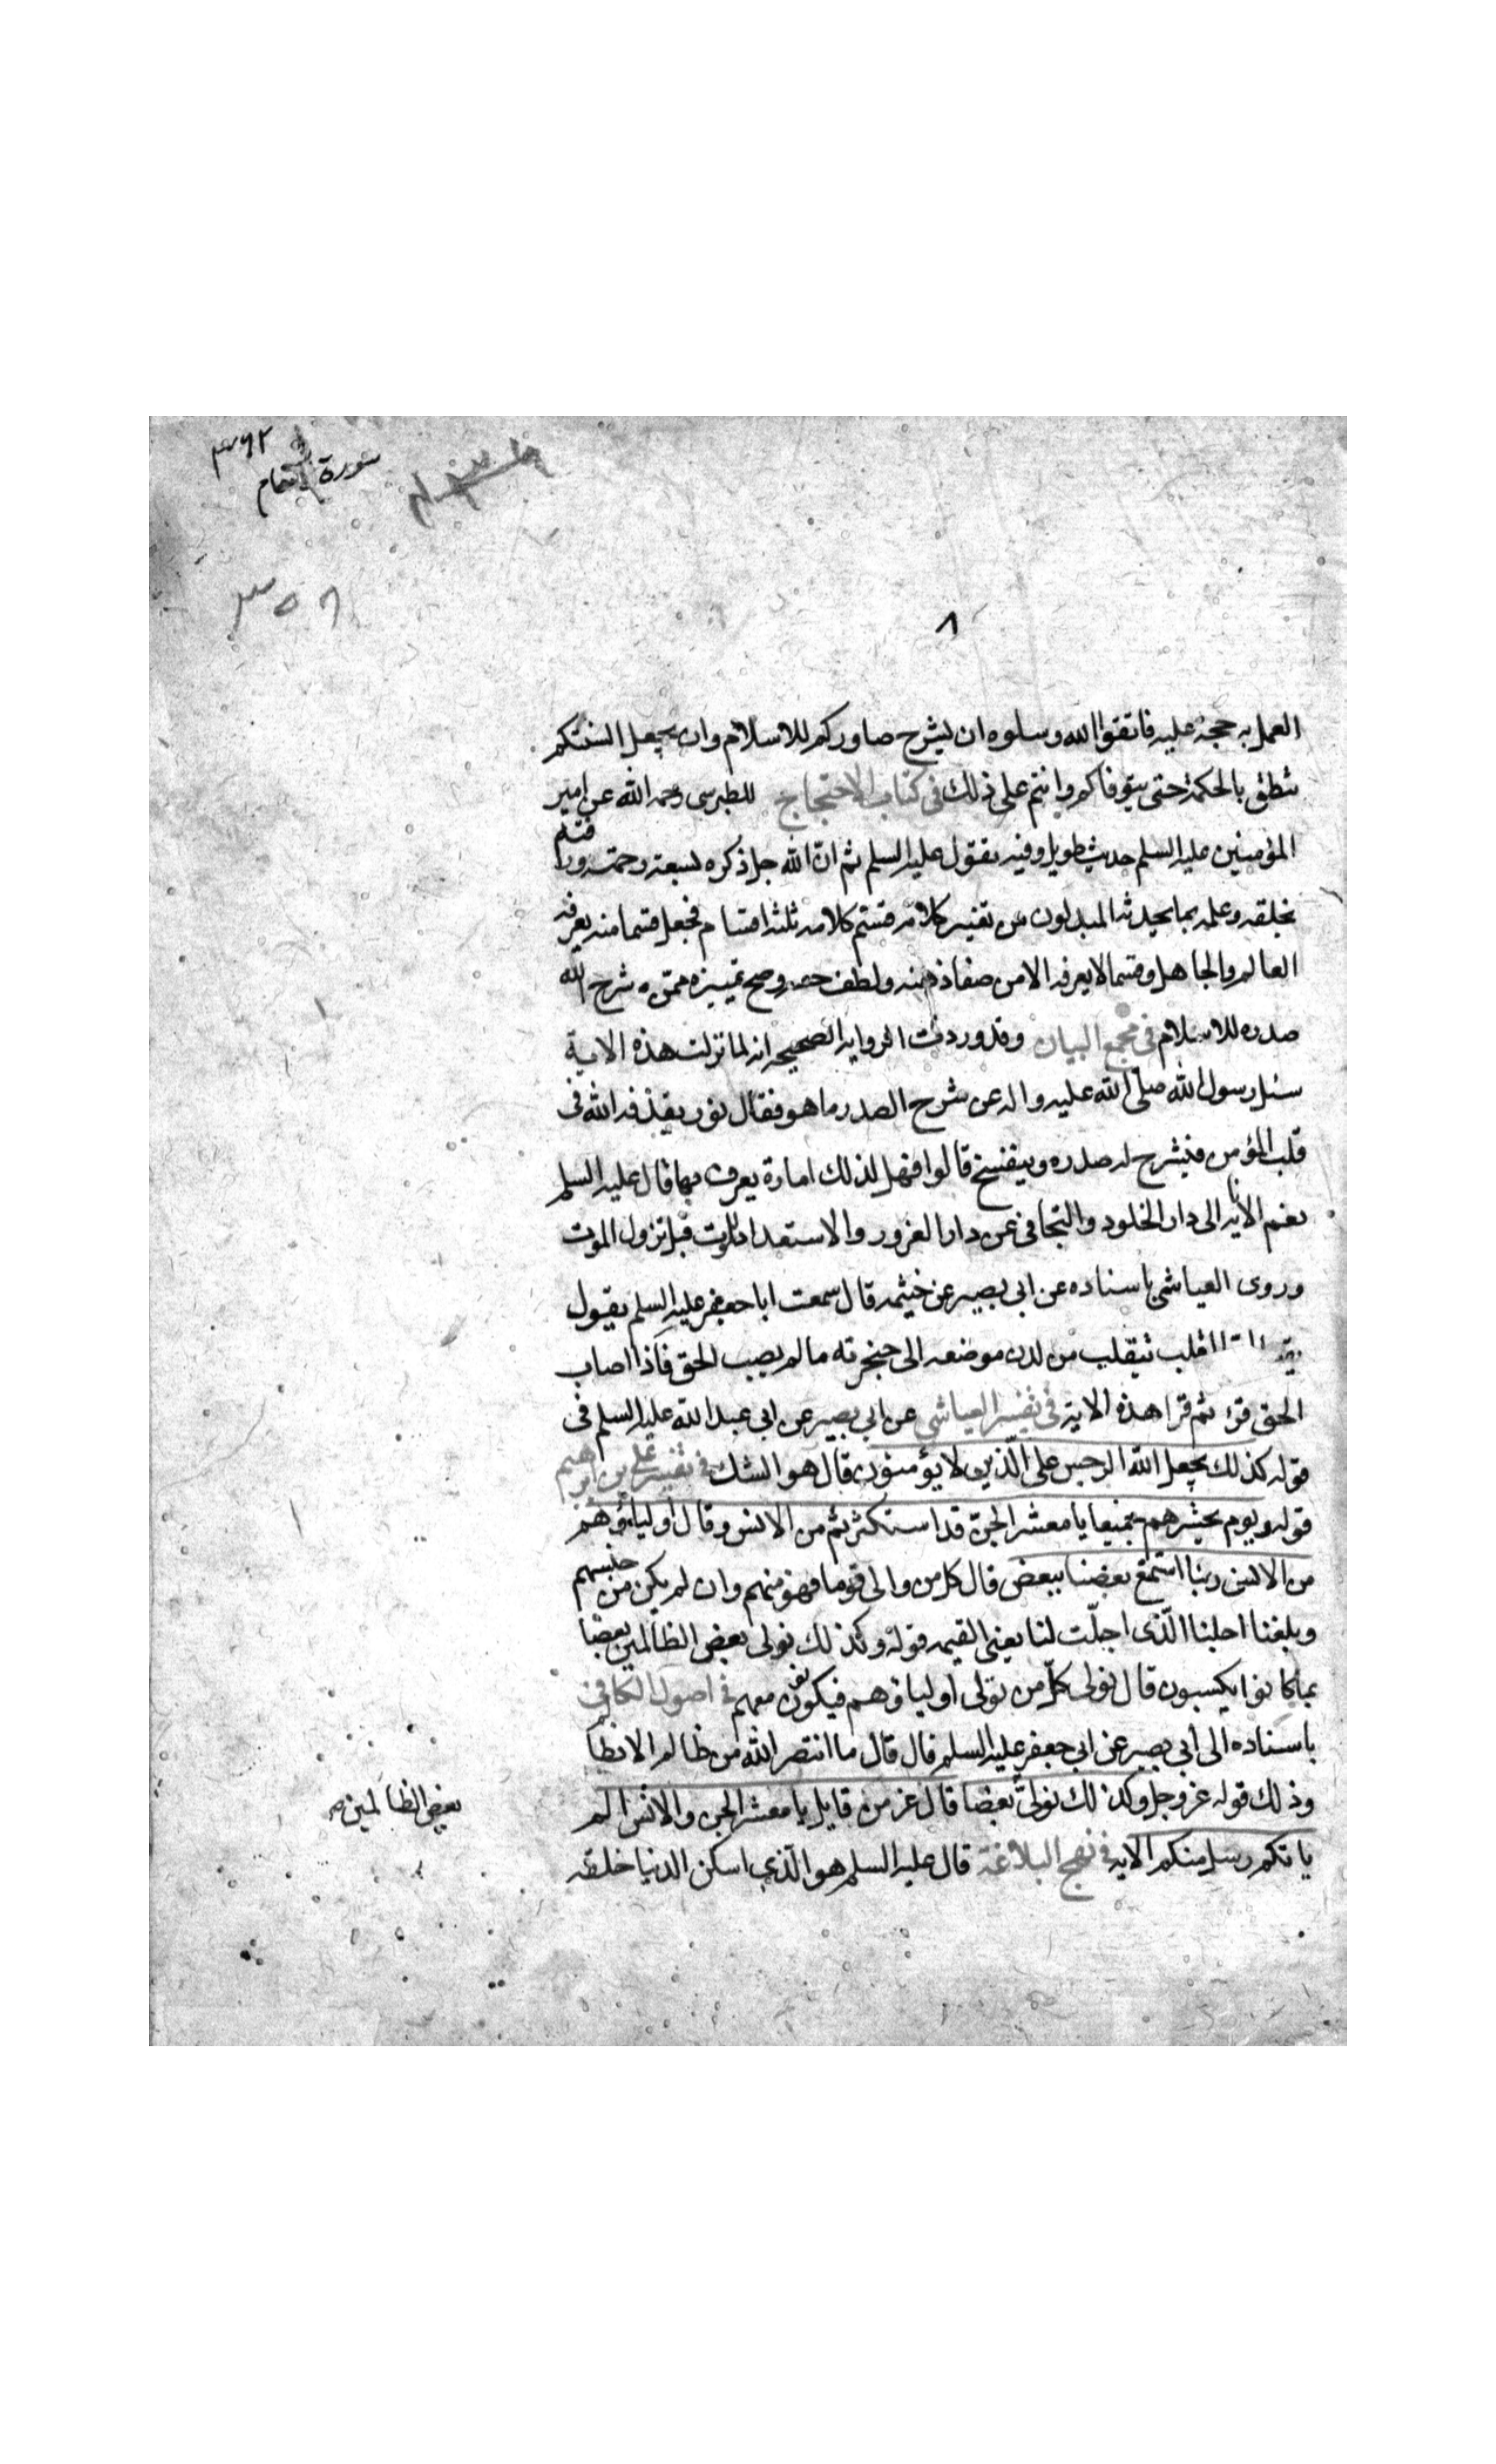 سورة الانعام
٨
العمل به حجة عليه فاتقوا الله وسلوه ان يشرح صدوركم للاسلام وان يجعل السنتكم
تنطق بالحكمة حتى يتوفاكم وانتم على ذلك في كتاب الاحتجاج للطبرسى رحمه الله عن امير
المؤمنين عليه السلم حديث طويل وفيه يقول عليه السلم ثم ان الله جل ذكره لسعة رحمته ورافته
بخلقه وعلمه بما يحدثه المبدلون من تغيير كلامه قسم كلامه ثلثة اقسام فجعل قسما منه يعرفه
العالم والجاهل وقسما لا يعرفه الا من صفا ذهنه ولطف حسه وصح تمييزه ممن شرح الله
صدره للاسلام في مجمع البيان وقد وردت الرواية الصحيحه انه لما نزلت هذه الاية
سئل رسول الله صلى الله عليه واله عن شرح الصدر ما هو فقال نور يقذفه الله فى
قلب المؤمن فينشرح له صدره وينفسخ قالوا فهل لذلك امارة يعرف بها قال عليه السلم
نعم الانابة الى دار الخلود والتجافى عن دار الغرور والاستعداد للموت قبل نزول الموت
وروى العياشى باسناده عن ابى بصير عن خيثمه قال سمعت ابا جعفر عليه السلم يقول
القلب يتقلب من لدن موضعه الى حنجرته ما لم يصب الحق فاذا اصاب
الحق قر ثم قرا هذه الاية في تفسير العياشي عن ابي بصير عن ابى عبد الله عليه السلم فى
قوله كذلك يجعل الله الرجس على الذين لا يؤمنون قال هو الشك في تفسير علي بن ابرهيم
قوله ويوم يحشرهم جميعا يا معشر الجن قد استكثرتم من الانس وقال اولياؤهم
من الانس ربنا استمتع بعضنا ببعض قال كل من والى قوما فهو منهم وان لم يكن من جنسهم
وبلغنا اجلنا الذى اجلت لنا يعنى القيمه قوله وكذلك نولى بعض الظالمين بعضا
بما كانوا يكسبون قال نولى كل من تولى اولياؤهم فيكونون معهم في اصول الكافي
باسناده الى ابي بصير عن ابي جعفر عليه السلم قال قال ما انتصر الله من ظالم الا بظالم
وذلك قوله عز وجل وكذلك نولى بعضا قال عز من قايل يا معشر الجن والانس الم
بعض الظالمين صح
ياتكم رسل منكم الايه في نهج البلاغة قال عليه السلم هو الذي اسكن الدنيا خلقه